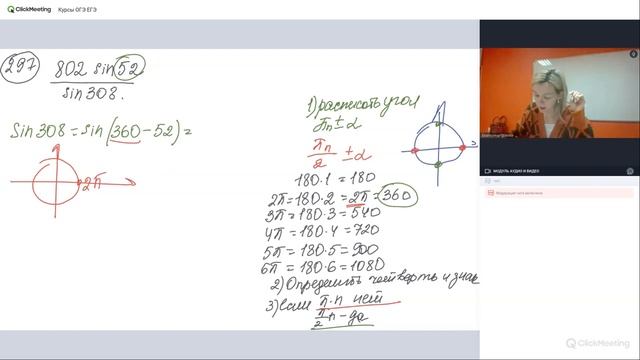 ClickMeeting
Курсы ОГЭ ЕГЭ
297
802 sin 52
sin 308.
sin 308 = sin (360 - 52) =
2π
1) расписать угол
πn ± α
πn/2 ± α
180·1 = 180
2π = 180·2 = 2π = 360
3π = 180·3 = 540
4π = 180·4 = 720
5π = 180·5 = 900
6π = 180·6 = 1080
2) Определить четверть и знак
3) Если π·n нет
π/2 n - да
МОДУЛЬ АУДИО И ВИДЕО
ClickMeeting